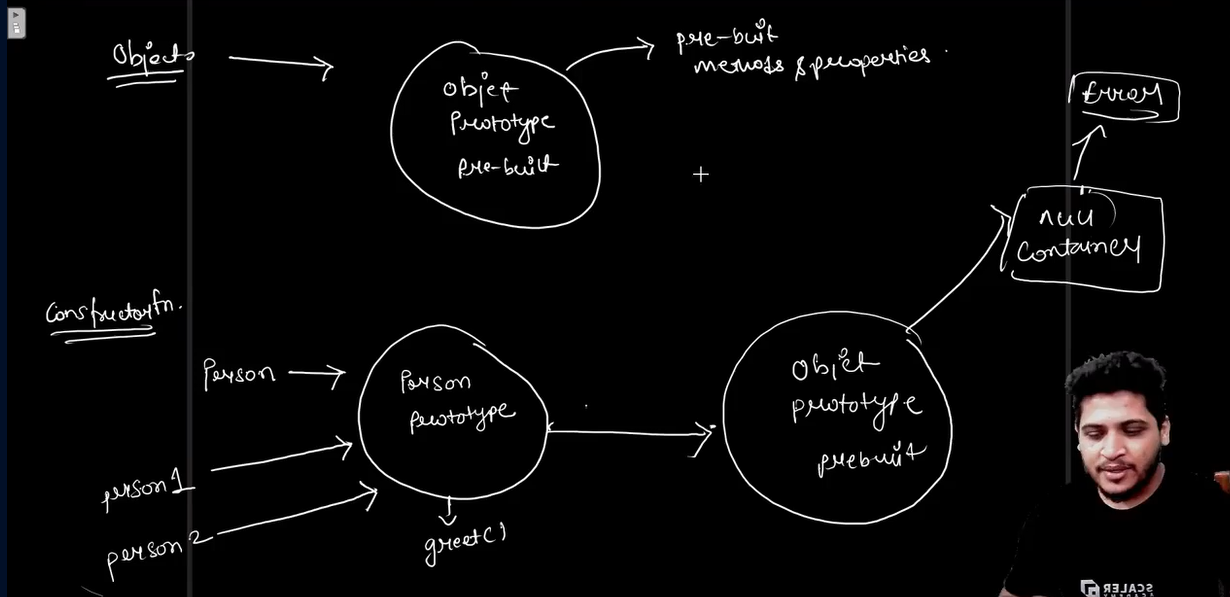 Objects
Object
Prototype
pre-built
pre-built
methods & properties.
Error
null
Container
Constructor fn.
Person
person 1
person 2
Person
prototype
greet()
Object
prototype
prebuilt
SCALER
ACADEMY